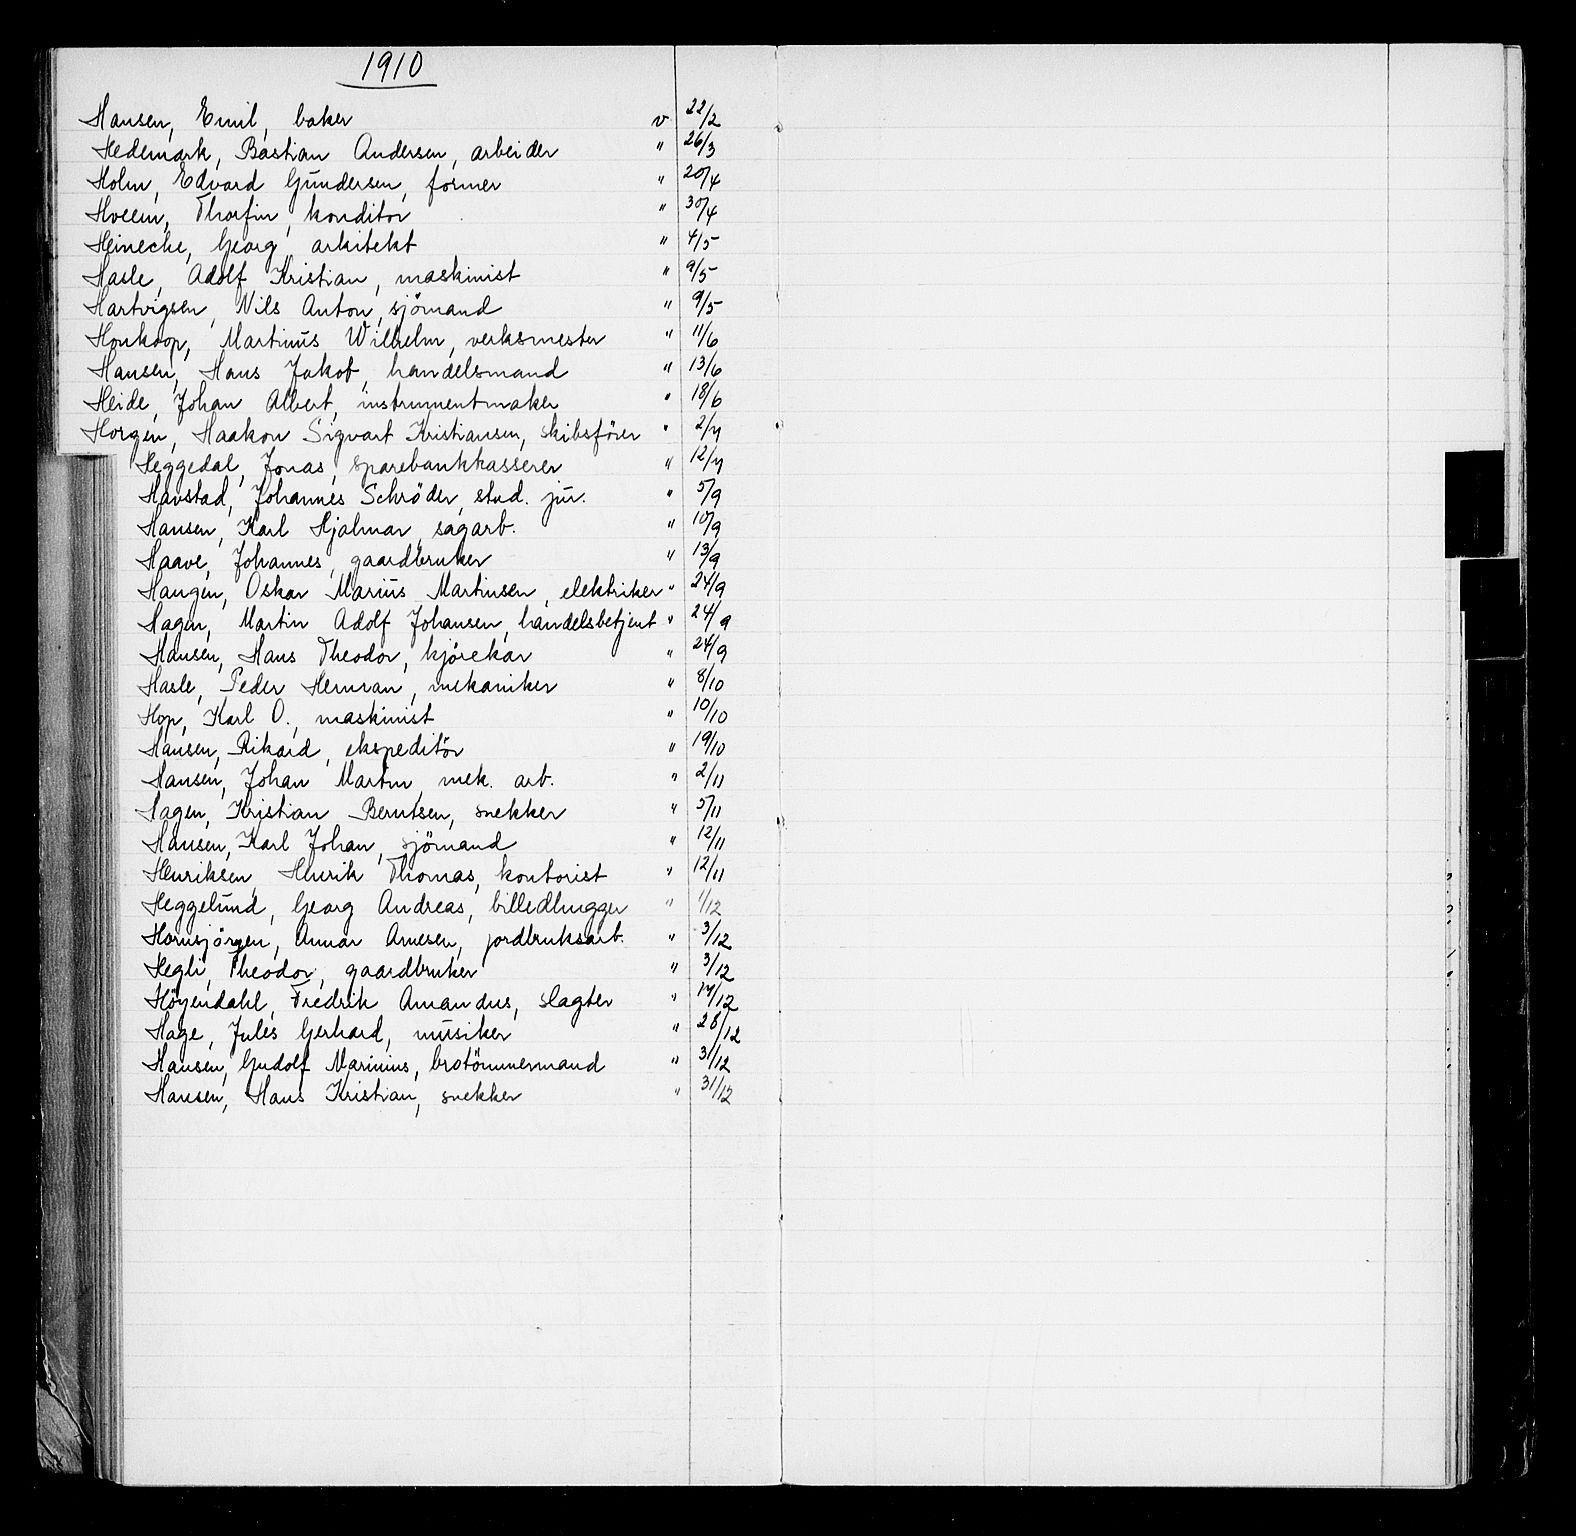 1910
Hansen, Emil, baker v 22/2
Hedemark, Bastian Andersen, arbeider " 26/3
Holm, Edvard Gundersen, former " 20/4
Hveem, Thorfin, konditor " 30/4
Heinecke, Georg, arkitekt " 4/5
Hasle, Adolf Kristian, maskinist " 9/5
Hartvigsen, Nils Anton, sjömand " 9/5
Honkoop, Martinus Wilhelm, verksmester " 11/6
Hansen, Hans Jakob, handelsmand " 13/6
Heide, Johan Albert, instrumentmaker " 18/6
Horgen, Haakon Sigvart Kristiansen, skibsförer " 2/7
Heggedal, Jonas, sparebankkasserer " 12/7
Havstad, Johannes Schröder, stud. jur. " 5/9
Hansen, Karl Hjalmar, sagarb. " 10/9
Haave, Johannes, gaardbruker " 13/9
Haugen, Oskar Marius Martinsen, elektriker " 24/9
Hagen, Martin Adolf Johansen, handelsbetjent " 24/9
Hansen, Hans Theodor, kjörekar " 24/9
Hasle, Peder Herman, mekaniker " 8/10
Hop, Karl O., maskinist " 10/10
Hansen, Rikard, ekspeditör " 19/10
Hansen, Johan Martin, mek. arb. " 2/11
Hagen, Kristian Berntsen, snekker " 5/11
Hansen, Karl Johan, sjömand " 12/11
Henriksen, Henrik Thomas, kontorist " 12/11
Heggelund, Georg Andreas, billedhugger " 1/12
Hornsjörgen, Annar Arnesen, jordbruksarb. " 3/12
Hegli, Theodor, gaardbruker " 3/12
Höyendahl, Fredrik Amandus, slagter " 17/12
Hage, Jules Gerhard, musiker " 28/12
Hansen, Gudolf Marinius, brotömmermand " 31/12
Hansen, Hans Kristian, snekker " 31/12